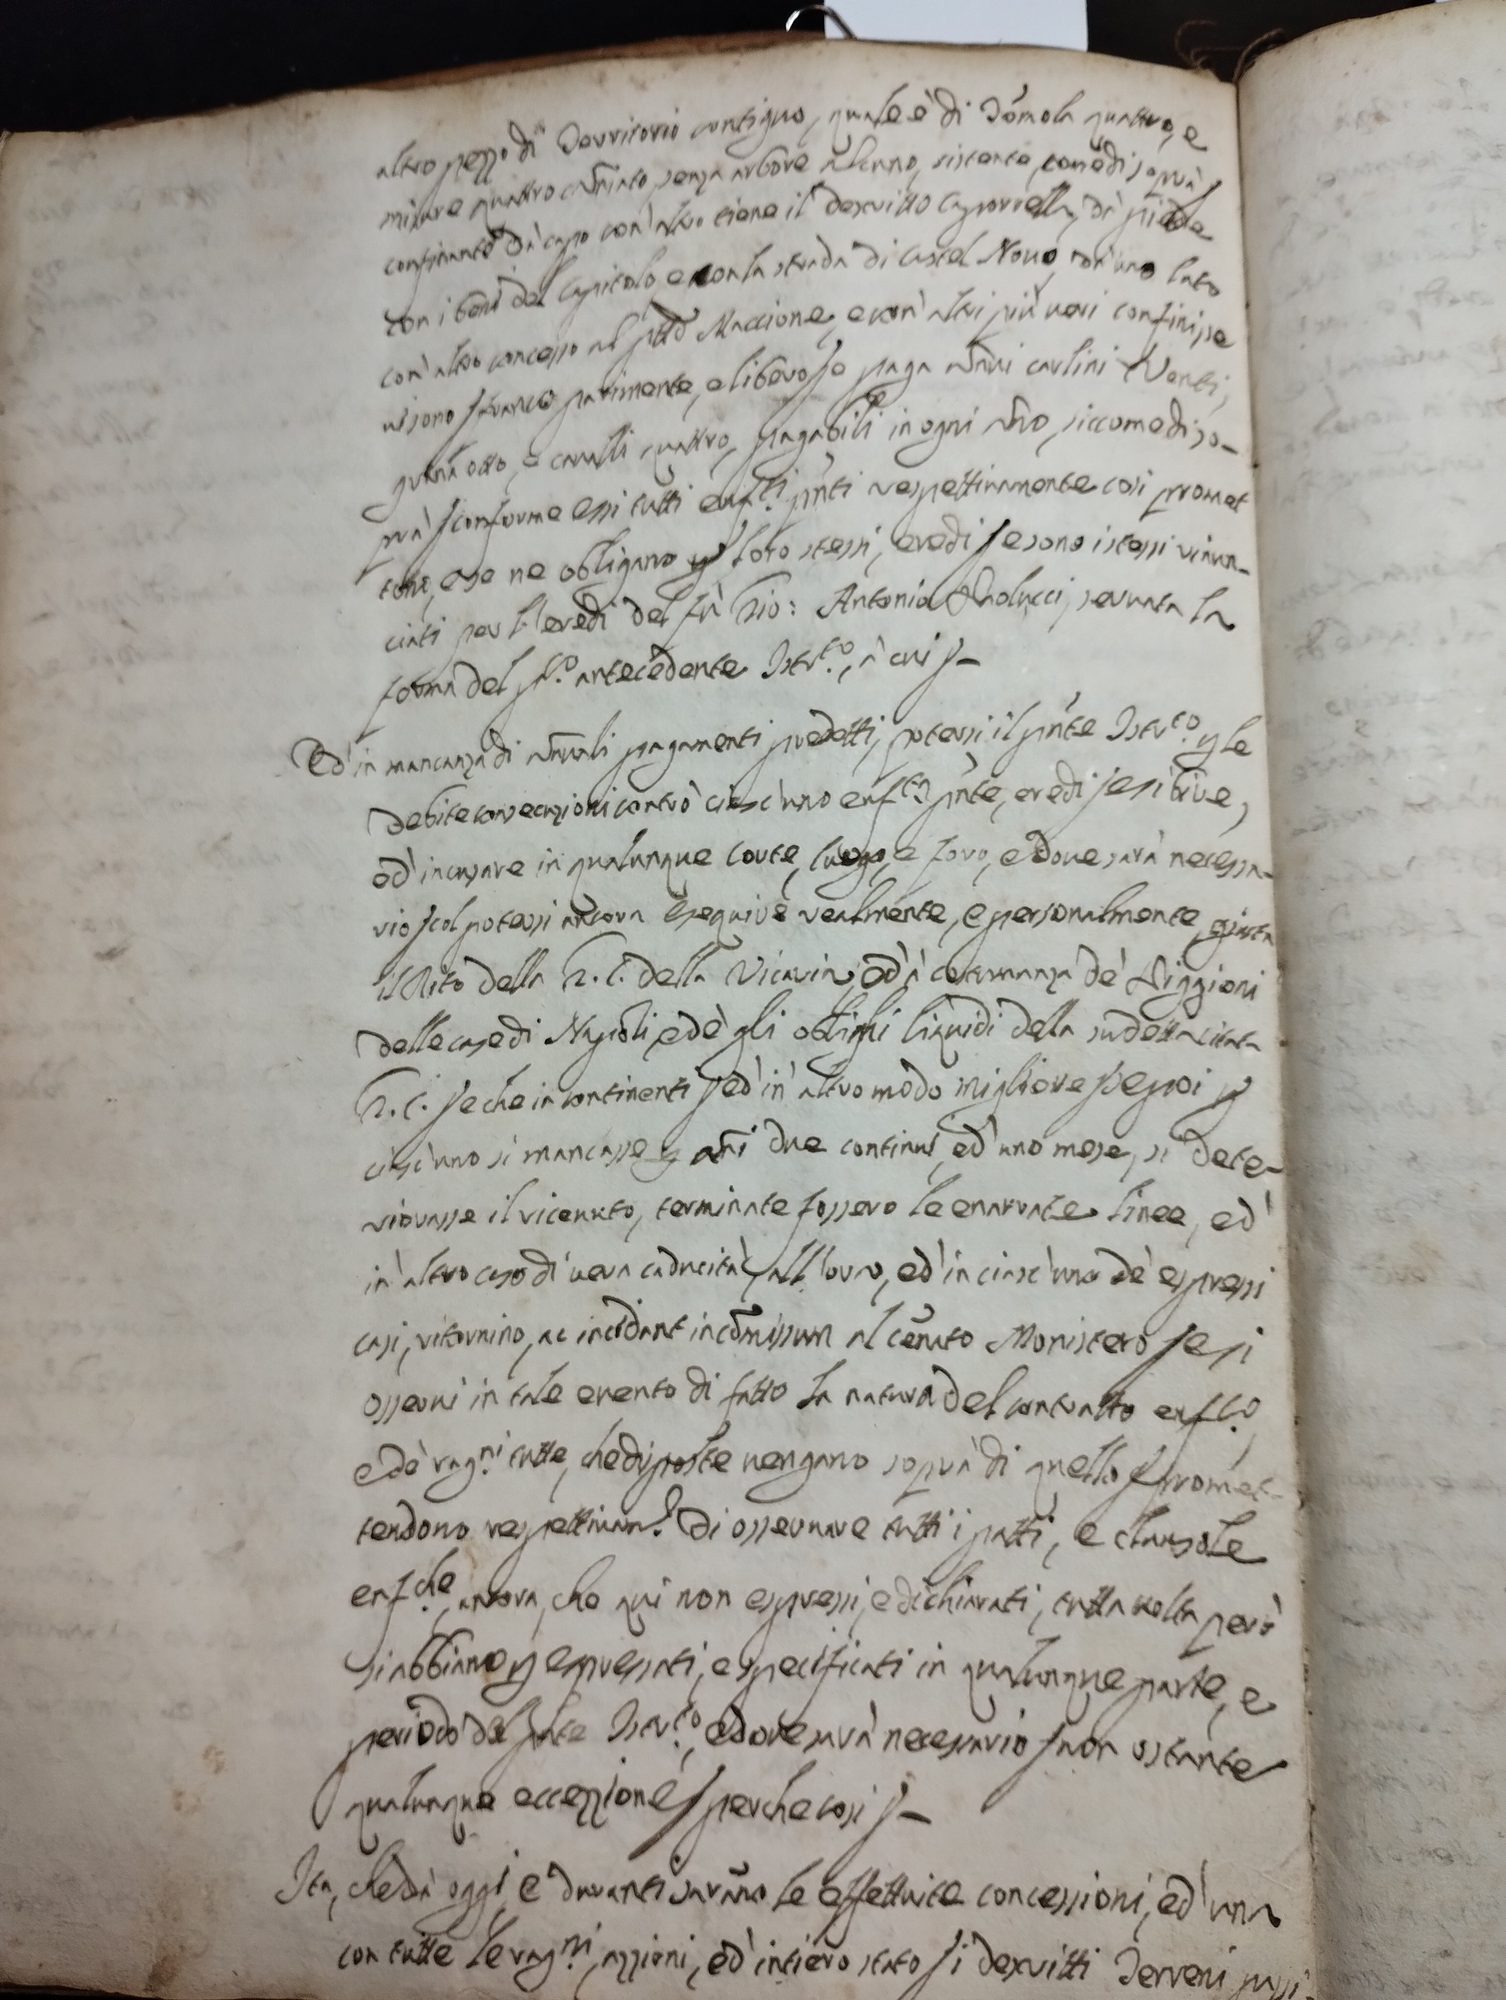 altro pezzo di Territorio contiguo, quale è di Tomola quattro, e
misure quattro censuato, senza arbore alcuno, sistente, come di soprà,
confinante dà capo con altro tiene il descritto Caporrella, dà piede
con i beni del Capitolo e con la strada di Castel Novo, dà uno lato
con altro concesso al ptto Maccione, e con altri più veri confini, se
vi sono, franco parimente, e libero, se paga annui carlini Venti,
grana otto, e cavalli quattro, pagabili in ogni anno, siccome di so-
prà, conforme essi tutti enf.ti pnti respettivamente così promet
tono, e se ne obligano p loro stessi, eredi, e sono istessi rinun-
ciati per l'eredi del fù Gio: Antonio Paolucci, servata la
forma del pto. antecedente Istr.to, à cui p-
Ed' in mancanza di annuali pagamenti predetti, potersi il pnte Istr.to p le
debite consecuzioni contrò ciasc'uno enf.ta pnte, eredi, e si brive,
ed' incusare in qualunque Corte, luogo, e foro, e dove sarà necessa-
rio, col potersi ancora eseguire realmente, e personalmente, giusta
il Rito della G. C. della Vicaria, ed' à costumanza de' Piggioni
delle case di Napoli, e de' gli oblighi liquidi della sudetta citata
G. C., e che incontinenti, ed' in altro modo migliore, se poi p
ciasc'uno si mancasse p anni due continui, ed' uno mese, si dete-
riorasse il ricevuto, terminate fossero le enarrate linee, ed'
in altro caso di vera caducità, all'ora, ed' in ciasc'uno de' espressi
casi, ritornino, ac incidant in comissum al cennato Monistero, e si
osservi in tale evento di fatto la natura del contratto enf.co,
e de' rag.ni tutte, che disposte vengano soprà di quello, promet-
tendono respettivam.e di osservare tutti i patti, e clausole
enf.che, ancora, che qui non espressi, e dichiarati, tutta volta però
si abbiano p espressati, e specificati in qualunque parte, e
periodo del pnte Istr.to, e dove sarà necessario, non ostante
qualunque eccezzione, perche così p-
Ita, che dà oggi, e davanti saranno le effettuite concessioni, ed' una
con tutte le rag.ni, azzioni, ed' intiero stato, i descritti Terreni passi-